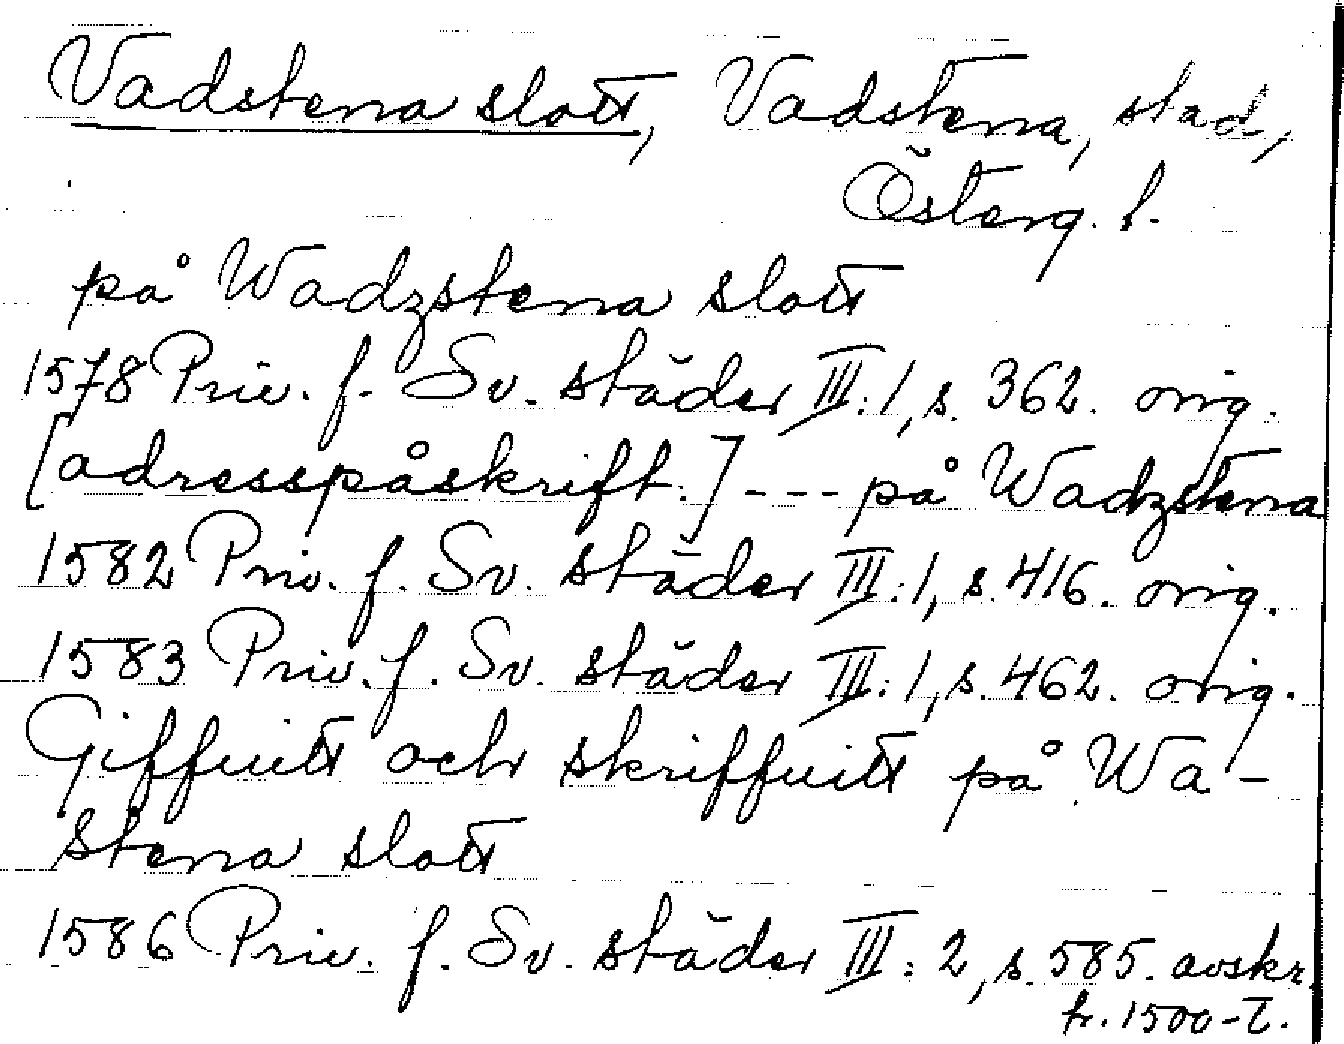 Vadstena slott, Vadstena, stad,
Österg. l.
på Wadzstena slott
1578 Priv. f. Sv. städer III:1, s. 362. orig.
[adresspåskrift:] --- på Wadzstena
1582 Priv. f. Sv. städer III:1, s. 416. orig.
1583 Priv. f. Sv. städer III:1, s. 462. orig.
Giffuitt och skriffuitt på Wa-
stena slott
1586 Priv. f. Sv. städer III:2, s. 585. avskr.
fr. 1500-t.